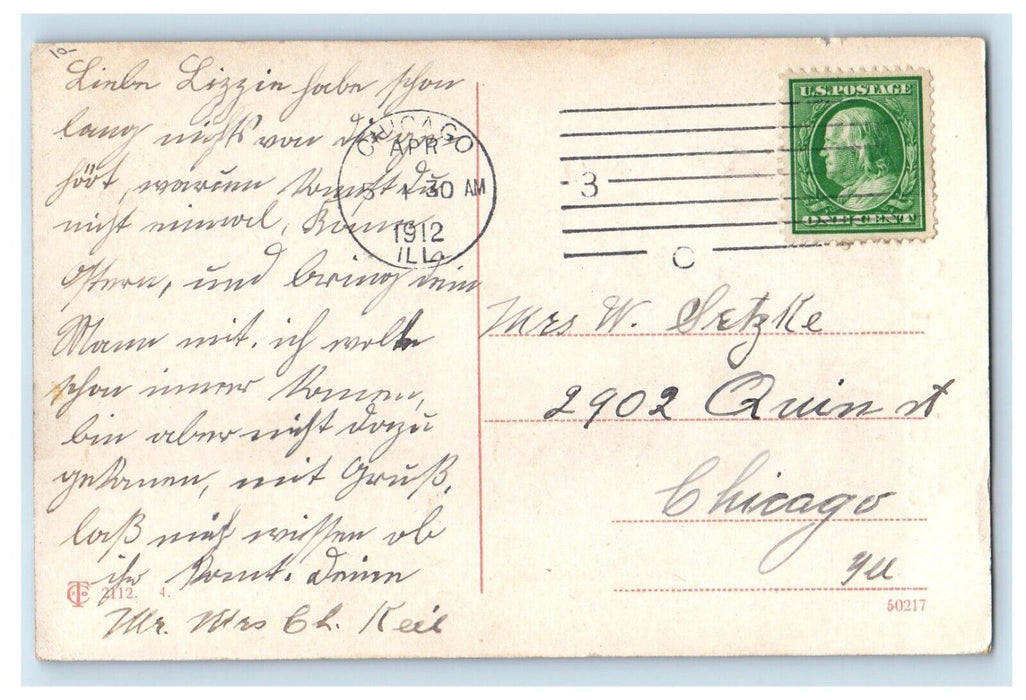 10-
Liebe Lizzie habe schon
lang nichts von dir ge
hört, warum komst du
nicht einmal, kom
Ostern, und bring dein
Mann mit. ich wollte
schon immer komen,
bin aber nicht dazu
gekomen, mit Gruß,
laß mich wissen ob
ihr komt. Deine
Mr. Mrs Ch. Keil
CHICAGO
APR
5 1 30 AM
1912
ILL.
3
C
U.S. POSTAGE
ONE CENT
Mrs W. Setzke
2902 Quin st
Chicago
Ill
2112. 4.
50217